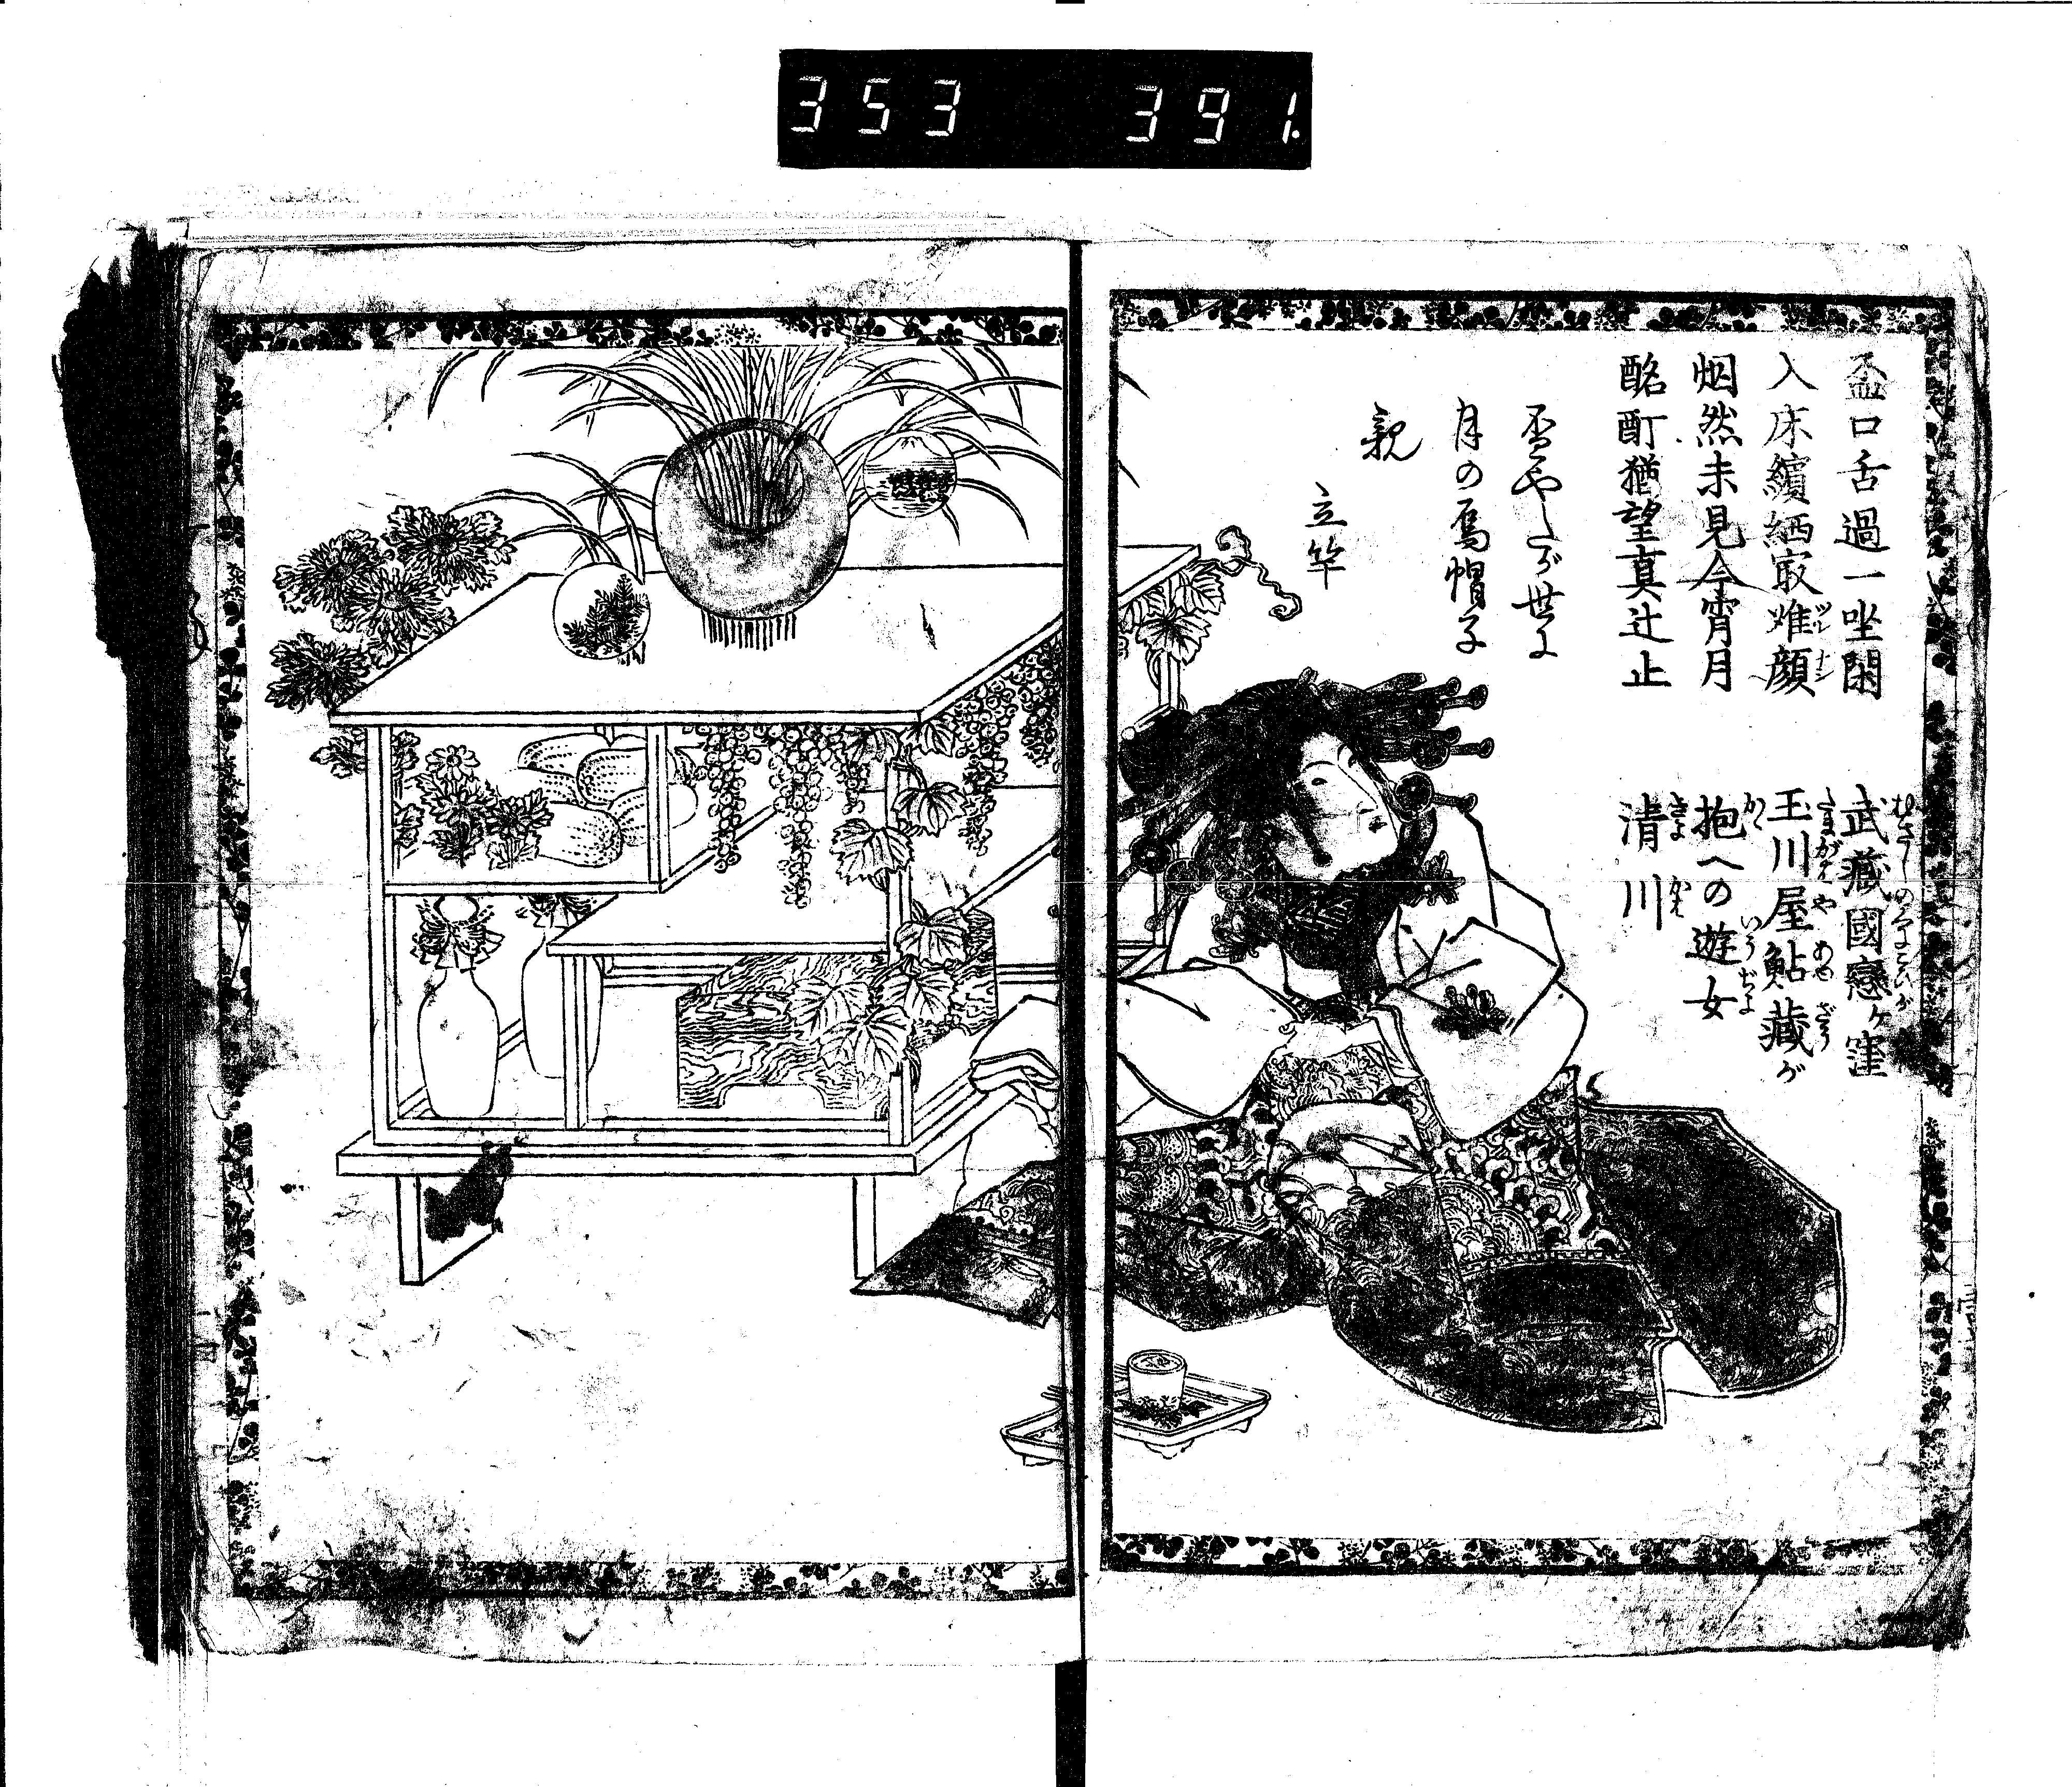 353 391.
盃口舌過一坐閑
入床纐纈㝡難顔
烟然未見今宵月
酩酊猶望真辻止
月の烏帽子
親
立竿
武藏國戀ヶ窪
玉川屋鮎藏が
抱への遊女
清川